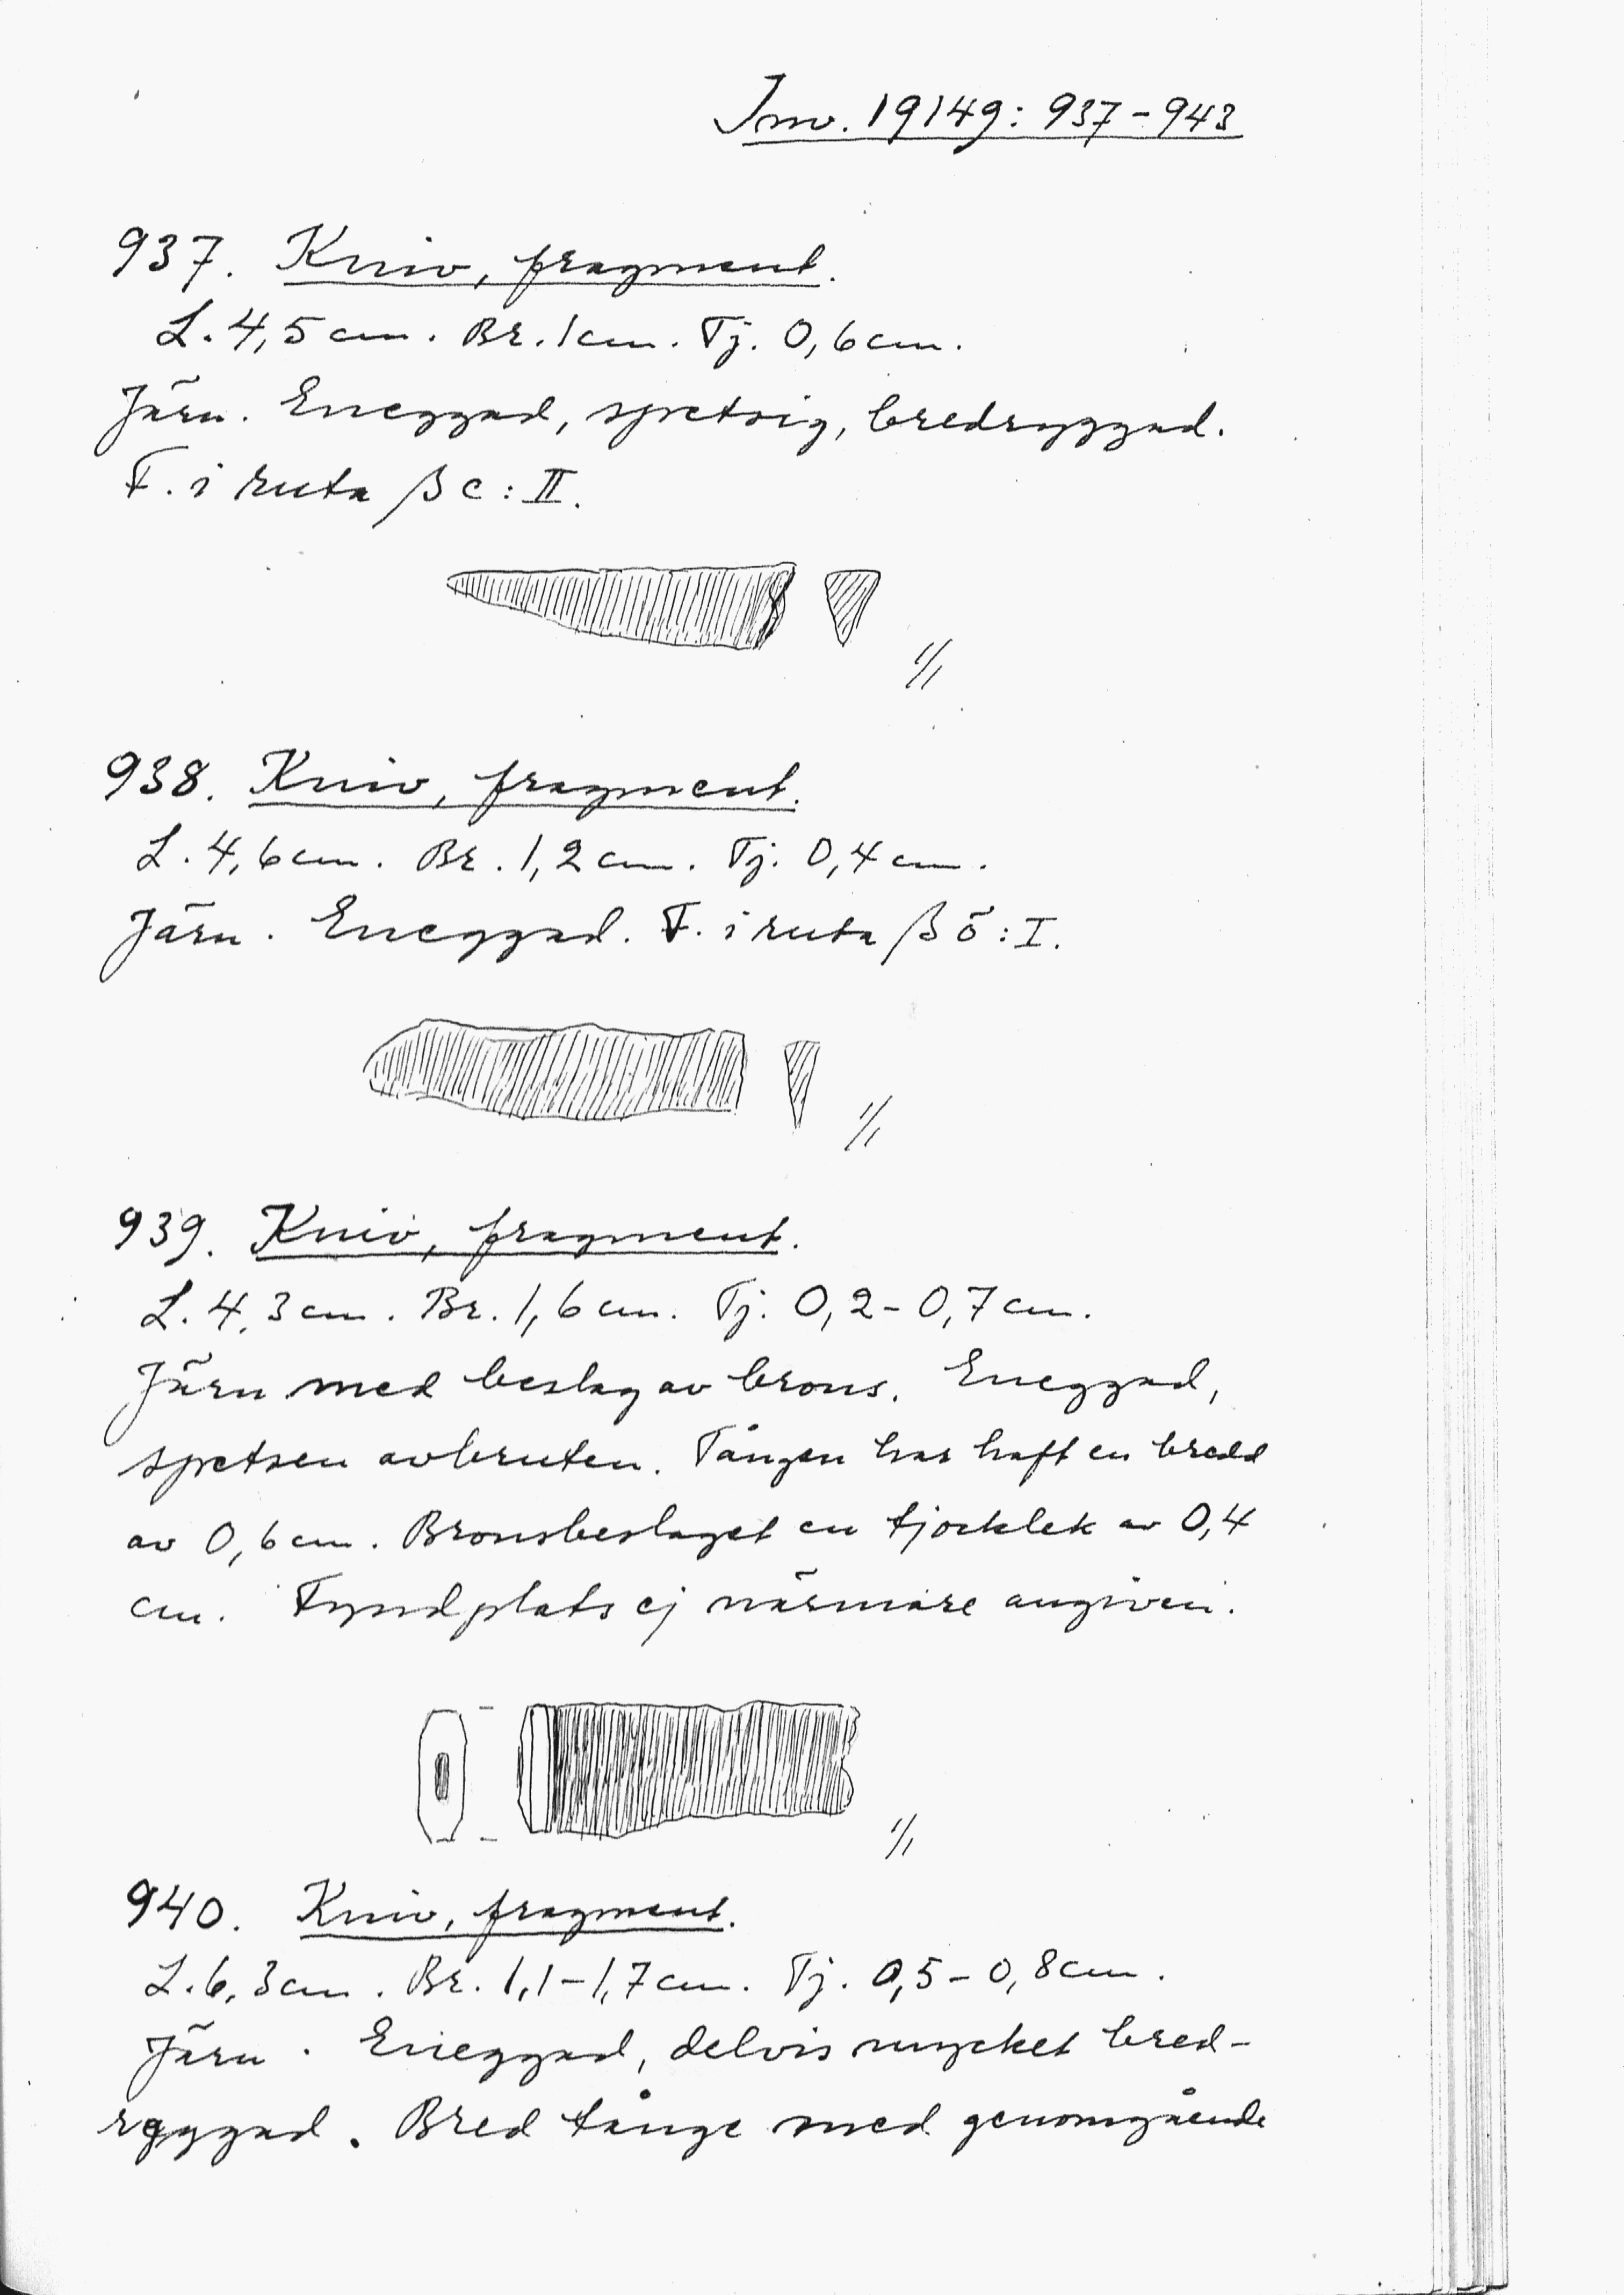 Inv. 19149: 937-943
937. Kniv, fragment.
L. 4,5 cm. Br. 1 cm. Tj. 0,6 cm.
Järn. Eneggad, spetsig, bredryggad.
F. i ruta β c: II.
1/1
938. Kniv, fragment.
L. 4,6 cm. Br. 1,2 cm. Tj. 0,4 cm.
Järn. Eneggad. F. i ruta β ö: I.
1/1
939. Kniv, fragment.
L. 4,3 cm. Br. 1,6 cm. Tj. 0,2-0,7 cm.
Järn med beslag av brons. Eneggad,
spetsen avbruten. Tången har haft en bredd
av 0,6 cm. Bronsbeslaget en tjocklek av 0,4
cm. Fyndplats ej närmare angiven.
1/1
940. Kniv, fragment.
L. 6,3 cm. Br. 1,1-1,7 cm. Tj. 0,5-0,8 cm.
Järn. Eneggad, delvis mycket bred-
ryggad. Bred tånge med genomgående